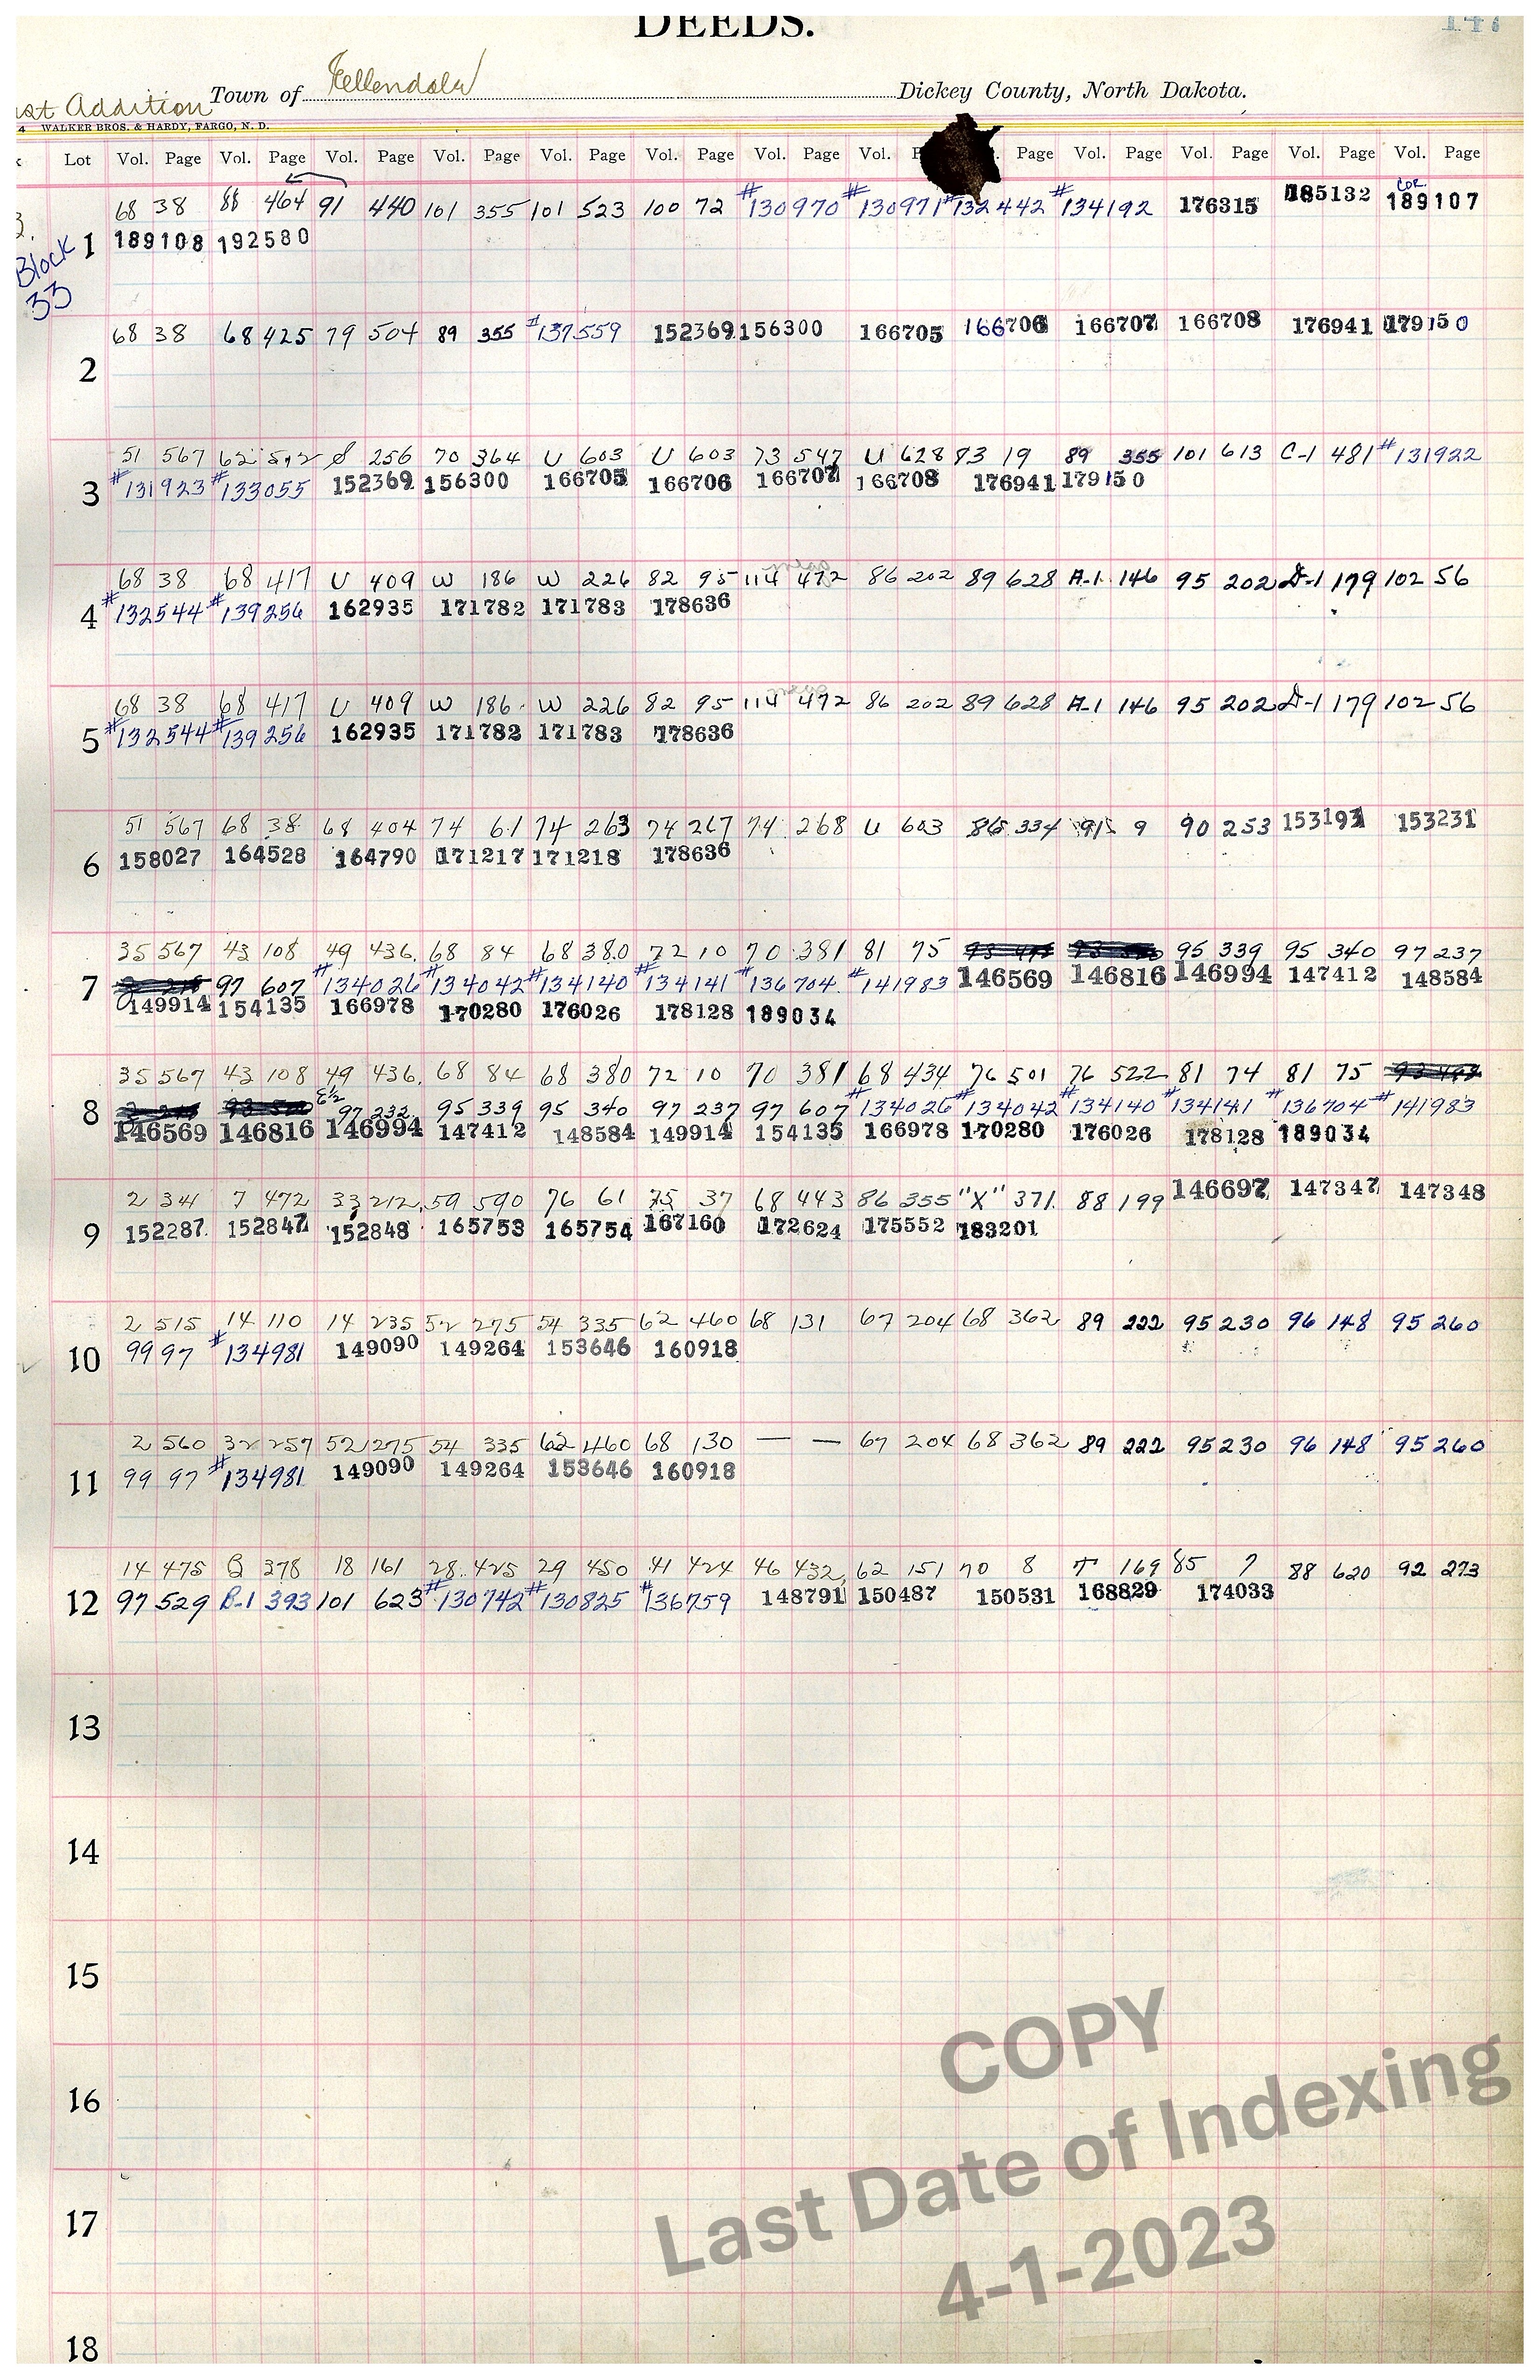 DEEDS.
147
Addition Town of Ellendale Dickey County, North Dakota.
4 WALKER BROS. & HARDY, FARGO, N. D.
Lot Vol. Page Vol. Page Vol. Page Vol. Page Vol. Page Vol. Page Vol. Page Vol. Page Vol. Page Vol. Page Vol. Page Vol. Page
68 38 88 464 91 440 101 355 101 523 100 72 #130970 #130971 #132442 #134192 176315 185132 COR 189107
1 189108 192580
Block
33
68 38 68 425 79 504 89 355 #137559 152369 156300 166705 166706 166707 166708 176941 179150
2
51 567 62 512 S 256 70 364 U 603 U 603 73 547 U 628 83 19 89 355 101 613 C-1 481 #131922
3 #131923 #133055 152369 156300 166705 166706 166707 166708 176941 179150
68 38 68 417 U 409 W 186 W 226 82 95 114 472 86 202 89 628 A-1 146 95 202 D-1 179 102 56
4 #132544 #139256 162935 171782 171783 178636
68 38 68 417 U 409 W 186 W 226 82 95 114 472 86 202 89 628 A-1 146 95 202 D-1 179 102 56
5 #132544 #139256 162935 171782 171783 178636
51 567 68 38 68 404 74 61 74 263 74 267 74 268 U 603 86 334 91 9 90 253 153193 153231
6 158027 164528 164790 171217 171218 178636
35 567 43 108 49 436 68 84 68 380 72 10 70 381 81 75 95 339 95 340 97 237
7 97 607 #134026 #134042 #134140 #134141 #136704 #141983 146569 146816 146994 147412 148584
149914 154135 166978 170280 176026 178128 189034
35 567 43 108 49 436 68 84 68 380 72 10 70 381 68 434 76 501 76 522 81 74 81 75
8 E½ 97 232 95 339 95 340 97 237 97 607 #134026 #134042 #134140 #134141 #136704 #141983
146569 146816 146994 147412 148584 149914 154135 166978 170280 176026 178128 189034
2 341 7 472 33 212 59 590 76 61 75 37 68 443 86 355 "X" 371 88 199 146697 147347 147348
9 152287 152847 152848 165753 165754 167160 172624 175552 183201
2 515 14 110 14 235 52 275 54 335 62 460 68 131 67 204 68 362 89 222 95 230 96 148 95 260
10 99 97 #134981 149090 149264 153646 160918
2 560 32 257 52 275 54 335 62 460 68 130 — — 67 204 68 362 89 222 95 230 96 148 95 260
11 99 97 #134981 149090 149264 153646 160918
14 475 Q 378 18 161 28 425 29 450 41 424 46 432 62 151 70 8 T 169 85 7 88 620 92 273
12 97 529 B-1 393 101 623 #130742 #130825 #136759 148791 150487 150531 168829 174033
13
14
15
16
17
18
COPY
Last Date of Indexing
4-1-2023